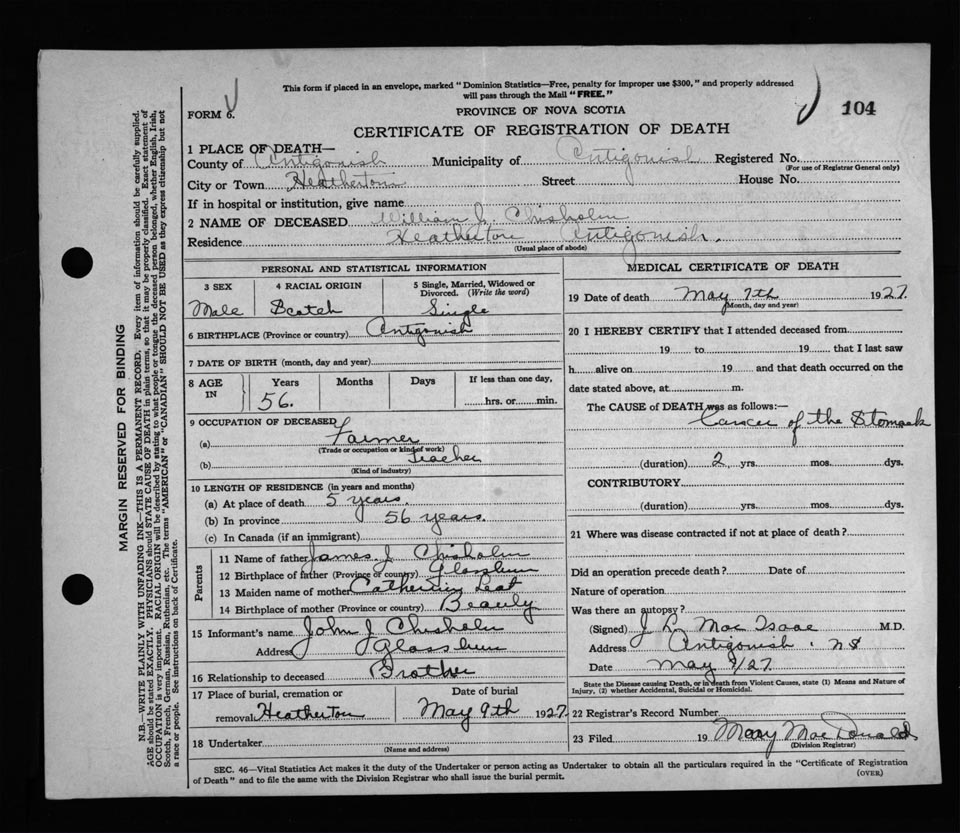 This form if placed in an envelope, marked "Dominion Statistics—Free, penalty for improper use $300," and properly addressed
will pass through the Mail "FREE."
FORM 6.
PROVINCE OF NOVA SCOTIA
104
CERTIFICATE OF REGISTRATION OF DEATH
1 PLACE OF DEATH—
County of Antigonish Municipality of Antigonish Registered No.
(For use of Registrar General only)
City or Town Heatherton Street House No.
If in hospital or institution, give name
2 NAME OF DECEASED William J. Chisholm
Residence Heatherton Antigonish.
(Usual place of abode)
PERSONAL AND STATISTICAL INFORMATION
3 SEX 4 RACIAL ORIGIN 5 Single, Married, Widowed or
Divorced. (Write the word)
Male Scotch Single
6 BIRTHPLACE (Province or country) Antigonish
7 DATE OF BIRTH (month, day and year)
8 AGE IN Years Months Days If less than one day,
56. hrs. or min.
9 OCCUPATION OF DECEASED
(a) Farmer
(Trade or occupation or kind of work)
(b) Teacher
(Kind of industry)
10 LENGTH OF RESIDENCE (in years and months)
(a) At place of death 5 years.
(b) In province 56 years.
(c) In Canada (if an immigrant)
Parents
11 Name of father James J Chisholm
12 Birthplace of father (Province or country) Glassburn
13 Maiden name of mother Catherine
14 Birthplace of mother (Province or country) Beauly
15 Informant's name John J Chisholm
Address Glassburn
16 Relationship to deceased Brother
17 Place of burial, cremation or Date of burial
removal Heatherton May 9th 1927
18 Undertaker
(Name and address)
MEDICAL CERTIFICATE OF DEATH
19 Date of death May 7th 1927.
(Month, day and year)
20 I HEREBY CERTIFY that I attended deceased from
19 to 19 that I last saw
h alive on 19 and that death occurred on the
date stated above, at m.
The CAUSE of DEATH was as follows:—
Cancer of the Stomach
(duration) 2 yrs. mos. dys.
CONTRIBUTORY
(duration) yrs. mos. dys.
21 Where was disease contracted if not at place of death?
Did an operation precede death? Date of
Nature of operation
Was there an autopsy?
(Signed) J L Mac Isaac M.D.
Address Antigonish. NS
Date May 9/27
State the Disease causing Death, or in death from Violent Causes, state (1) Means and Nature of
Injury, (2) whether Accidental, Suicidal or Homicidal.
22 Registrar's Record Number
23 Filed 19 Mary Mac Donald
(Division Registrar)
SEC. 46—Vital Statistics Act makes it the duty of the Undertaker or person acting as Undertaker to obtain all the particulars required in the "Certificate of Registration
of Death" and to file the same with the Division Registrar who shall issue the burial permit.
(OVER)
MARGIN RESERVED FOR BINDING
N.B.—WRITE PLAINLY WITH UNFADING INK—THIS IS A PERMANENT RECORD. Every item of information should be carefully supplied.
AGE should be stated EXACTLY. PHYSICIANS should STATE CAUSE OF DEATH in plain terms, so that it may be properly classified. Exact statement of
OCCUPATION is very important. RACIAL ORIGIN will be described by stating to what people or tongue the deceased person belonged, whether English, Irish,
Scotch, French, German, Russian, Ruthenian, etc. The terms "AMERICAN" or "CANADIAN" SHOULD NOT BE USED as they express citizenship but not
a race or people. See instructions on back of Certificate.